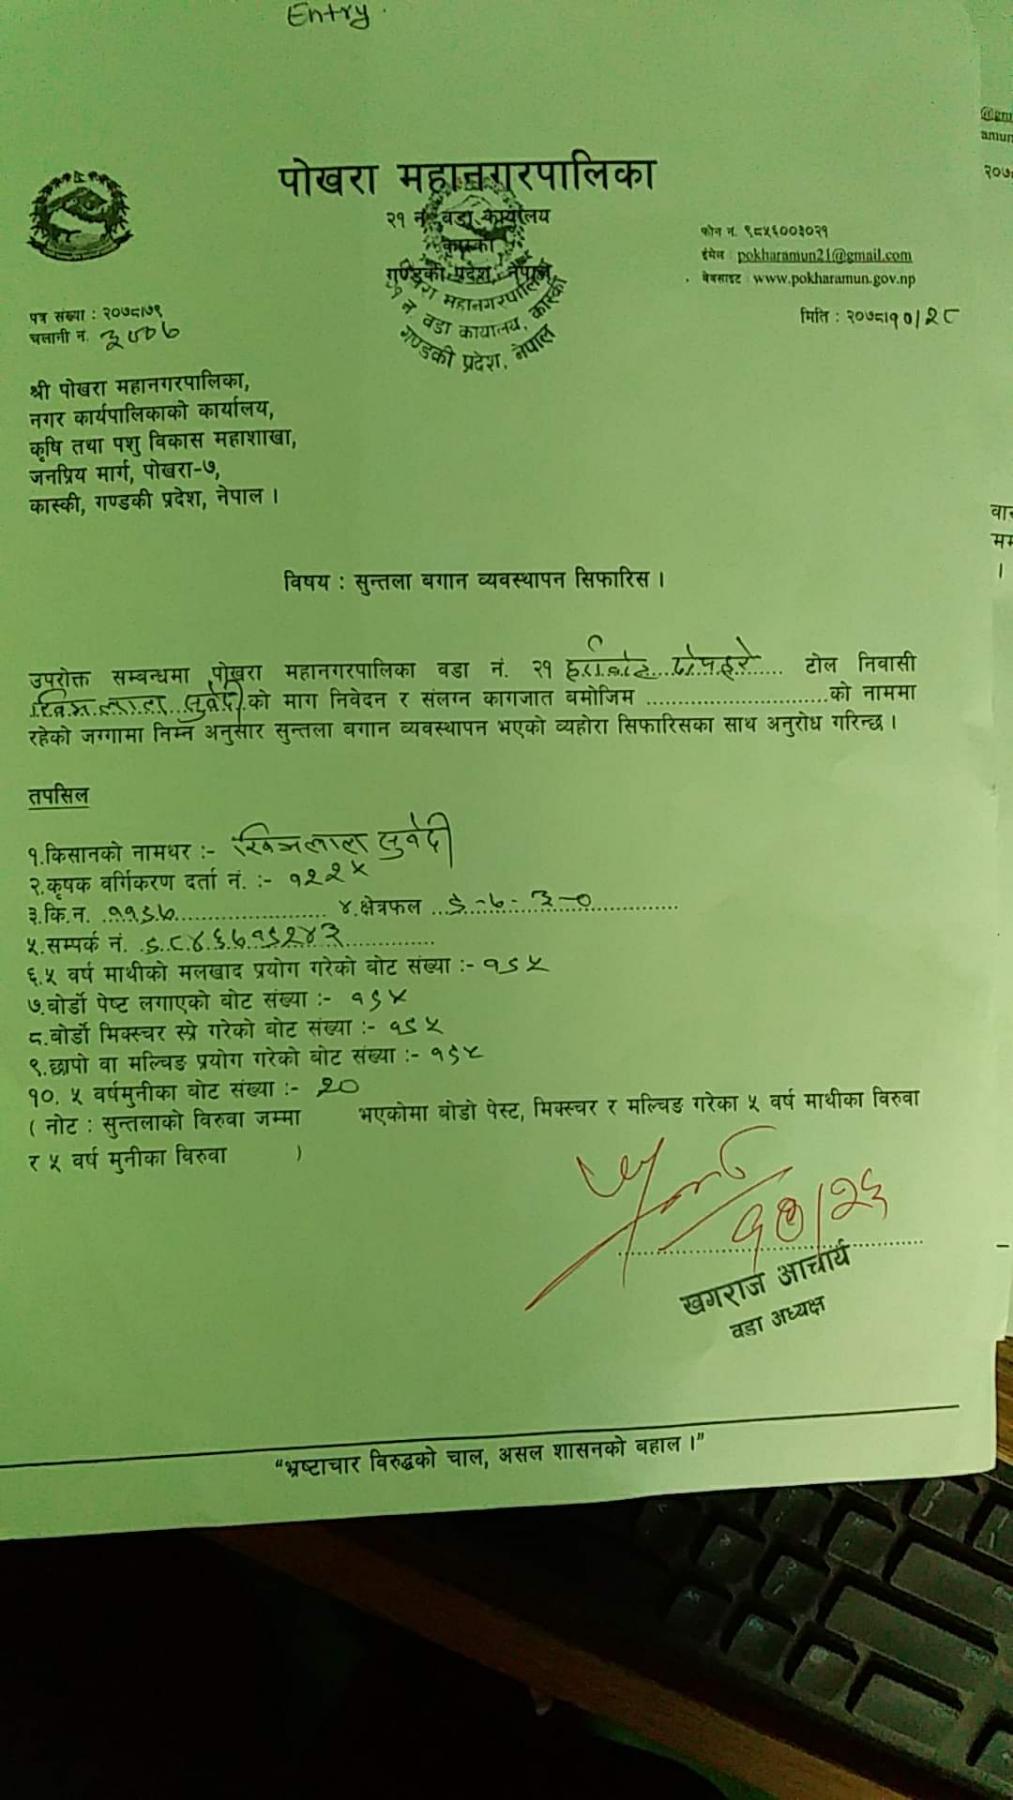 Entry.
पोखरा महानगरपालिका
२१ नं. वडा कार्यालय
कास्की
गण्डकी प्रदेश, नेपाल
पोखरा महानगरपालिका
२१ नं. वडा कार्यालय, कास्की
गण्डकी प्रदेश, नेपाल
फोन नं. ९८५६००३०२१
ईमेल : pokharamun21@gmail.com
वेबसाइट : www.pokharamun.gov.np
पत्र संख्या : २०७८।७९
चलानी नं.
मिति : २०७८।१०/२८
श्री पोखरा महानगरपालिका,
नगर कार्यपालिकाको कार्यालय,
कृषि तथा पशु विकास महाशाखा,
जनप्रिय मार्ग, पोखरा-७,
कास्की, गण्डकी प्रदेश, नेपाल ।
विषय : सुन्तला बगान व्यवस्थापन सिफारिस ।
उपरोक्त सम्बन्धमा पोखरा महानगरपालिका वडा नं. २१ टोल निवासी
खिमलाल सुवेदी को माग निवेदन र संलग्न कागजात बमोजिम ............................को नाममा
रहेको जग्गामा निम्न अनुसार सुन्तला बगान व्यवस्थापन भएको व्यहोरा सिफारिसका साथ अनुरोध गरिन्छ ।
तपसिल
१.किसानको नामथर :- खिमलाल सुवेदी
२.कृषक वर्गिकरण दर्ता नं. :- १२२५
३.कि.न. ११९७ ४.क्षेत्रफल ९-७-३-०
५.सम्पर्क नं. ९८४६७१९२४३
६.५ वर्ष माथीको मलखाद प्रयोग गरेको बोट संख्या :- १९५
७.बोर्डो पेष्ट लगाएको बोट संख्या :- १९५
८.बोर्डो मिक्स्चर स्प्रे गरेको बोट संख्या :- १९५
९.छापो वा मल्चिङ प्रयोग गरेको बोट संख्या :- १९५
१०. ५ वर्षमुनीका बोट संख्या :- २०
( नोट : सुन्तलाको विरुवा जम्मा भएकोमा बोडो पेस्ट, मिक्स्चर र मल्चिङ गरेका ५ वर्ष माथीका विरुवा
र ५ वर्ष मुनीका विरुवा )
१०/२६
खगराज आचार्य
वडा अध्यक्ष
“भ्रष्टाचार विरुद्धको चाल, असल शासनको बहाल ।”